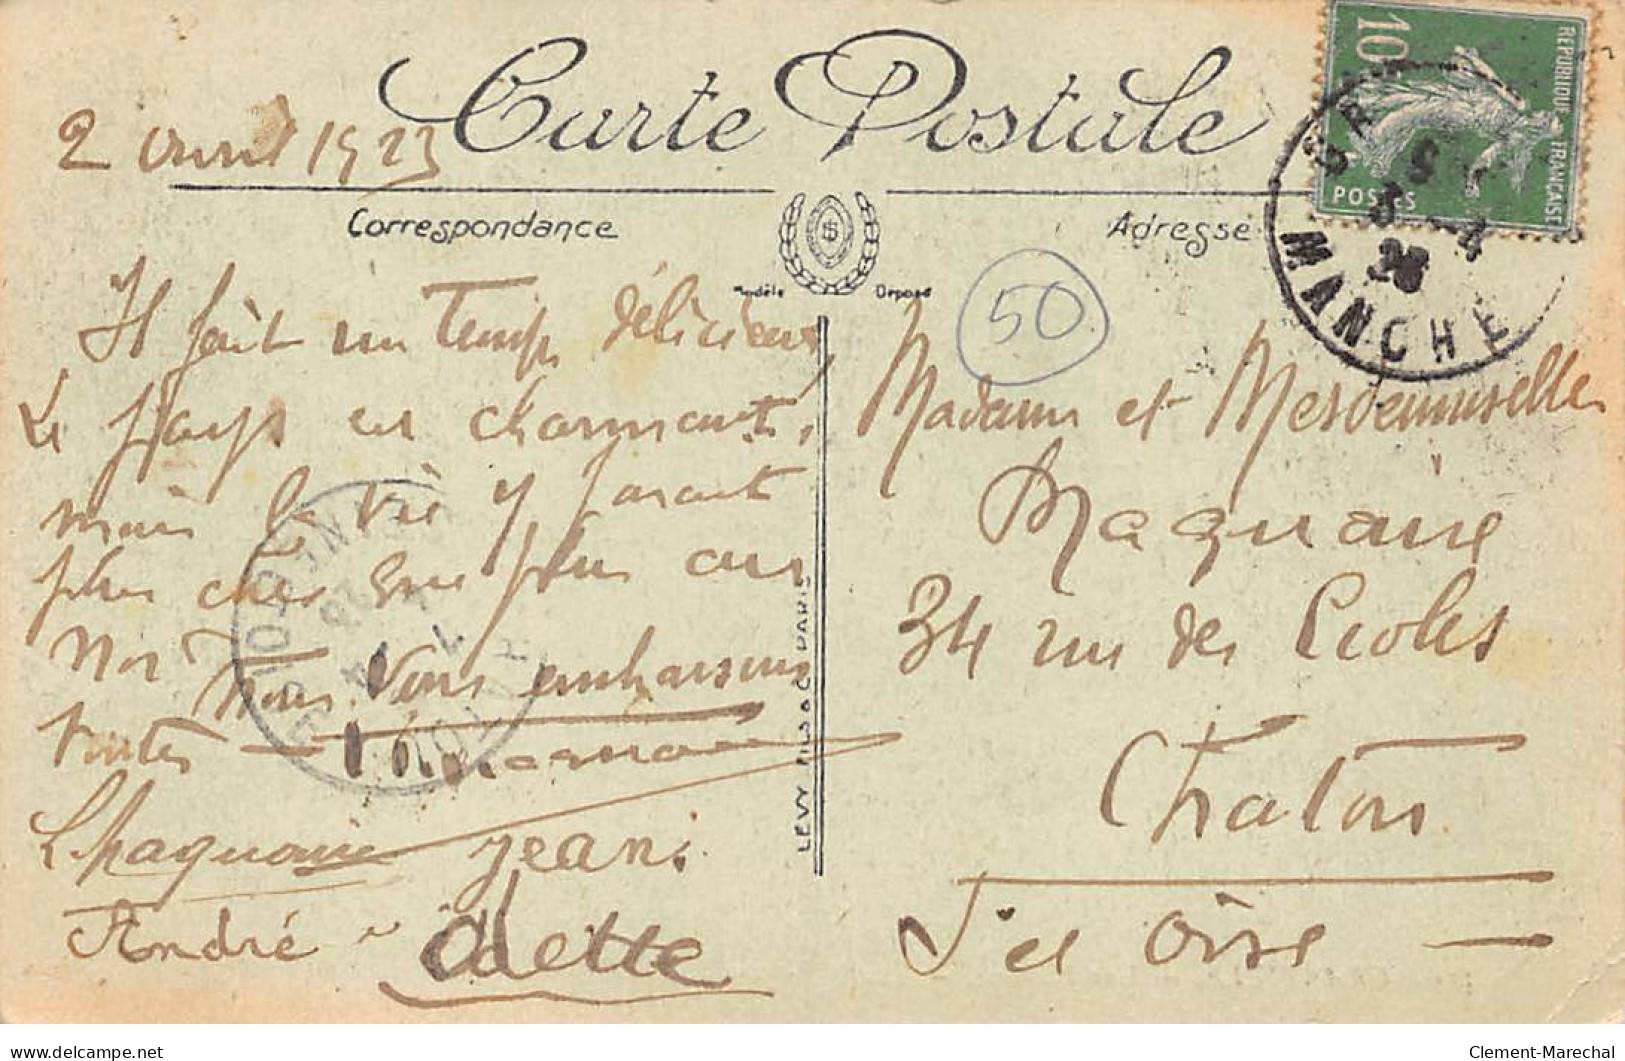 Carte Postale
2 avril 1923
Correspondance
Adresse
Modèle Déposé
10
REPUBLIQUE FRANÇAISE
POSTES
MANCHE
50
Il fait un temps délicieux,
Le pays est charmant,
mais la vie y parait
plus cher que plus
Nous Vous embrassons
toutes
LMaquaire Jean.
André ~ Odette
LEVY FILS & C° PARIS
Madame et Mesdemoiselles
Maquaire
34 rue des Ecoles
Chatou
S et Oise
Clement-Marechal
delcampe.net